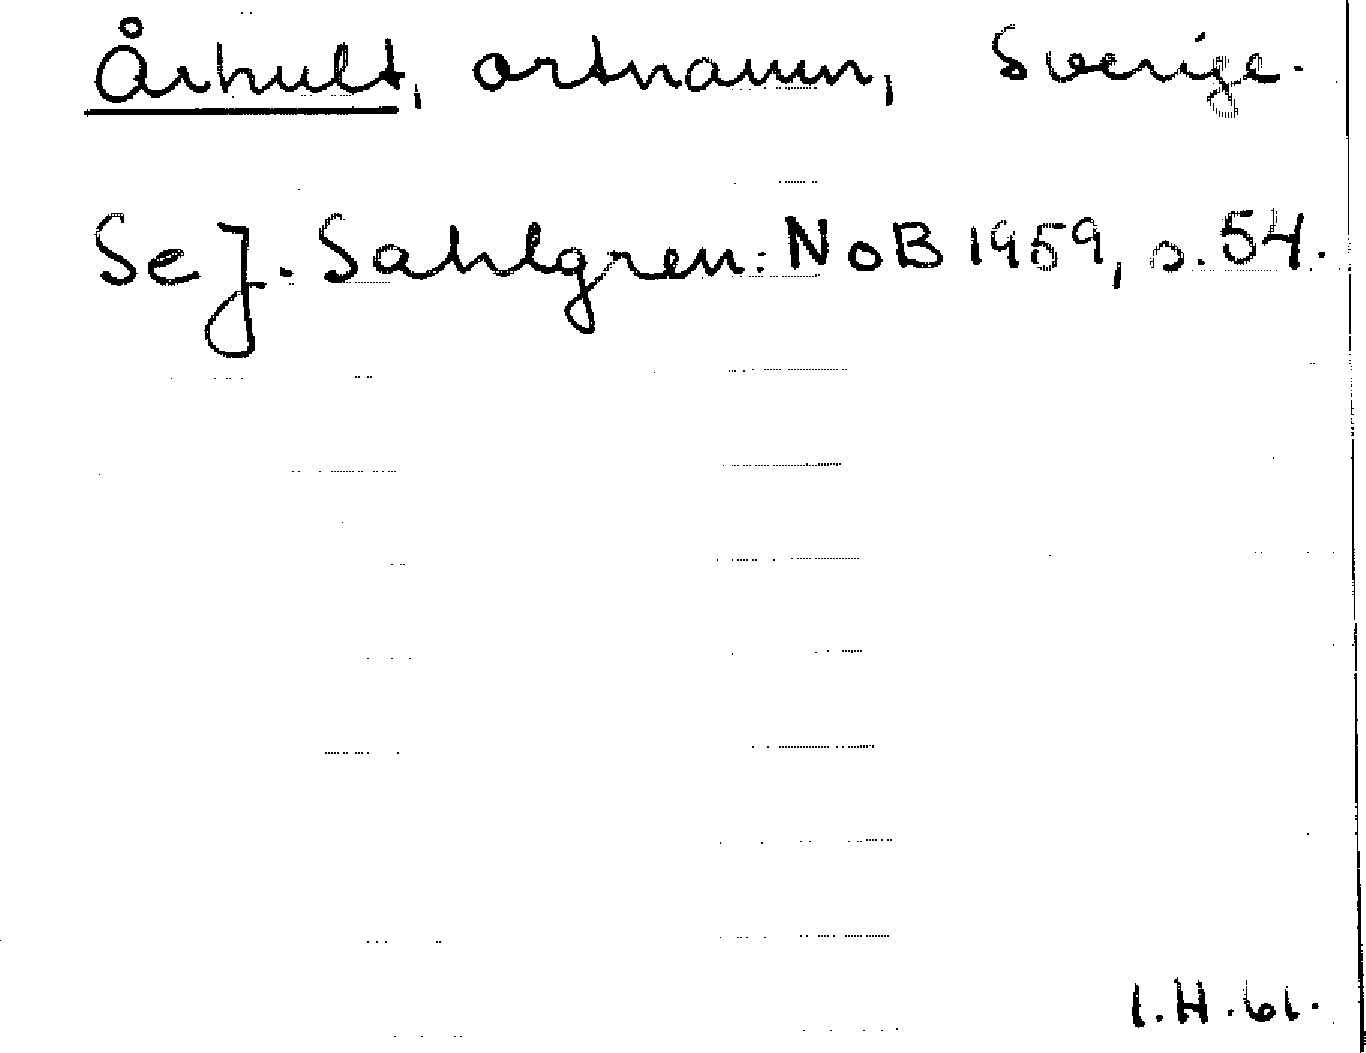 Århult, ortnamn, Sverige.
Se J. Sahlgren: NoB 1959, s. 54.
I.H.61.